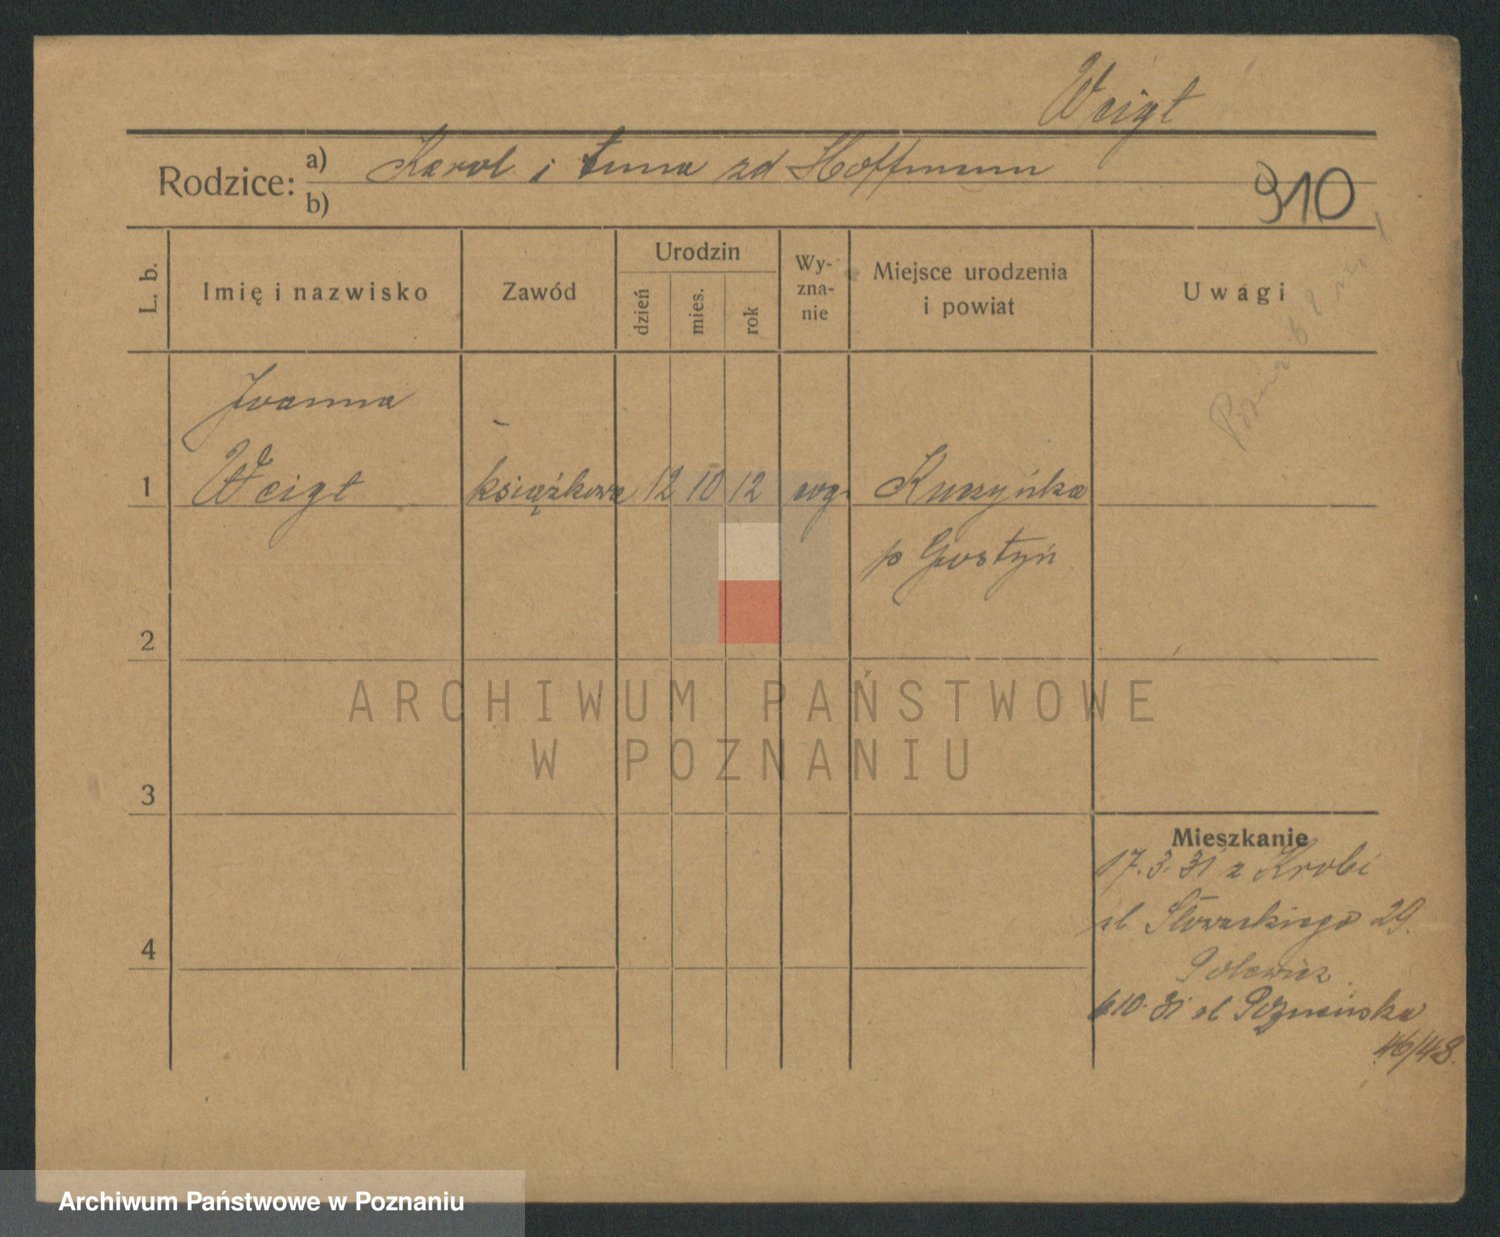 Weigt
Rodzice: a) Karol i Anna zd Hoffmann
b)
910
L. b.
Imię i nazwisko
Zawód
Urodzin
dzień
mies.
rok
Wy-
zna-
nie
Miejsce urodzenia
i powiat
Uwagi
Joanna
1 Weigt książkowa 12 10 12 ewg.
p Gostyń
2
3
4
Mieszkanie
17.3.31 z Krobi
ul Słowackiego 29.
6.10.31 ul Poznańska
46/48.
ARCHIWUM PAŃSTWOWE
W POZNANIU
Archiwum Państwowe w Poznaniu